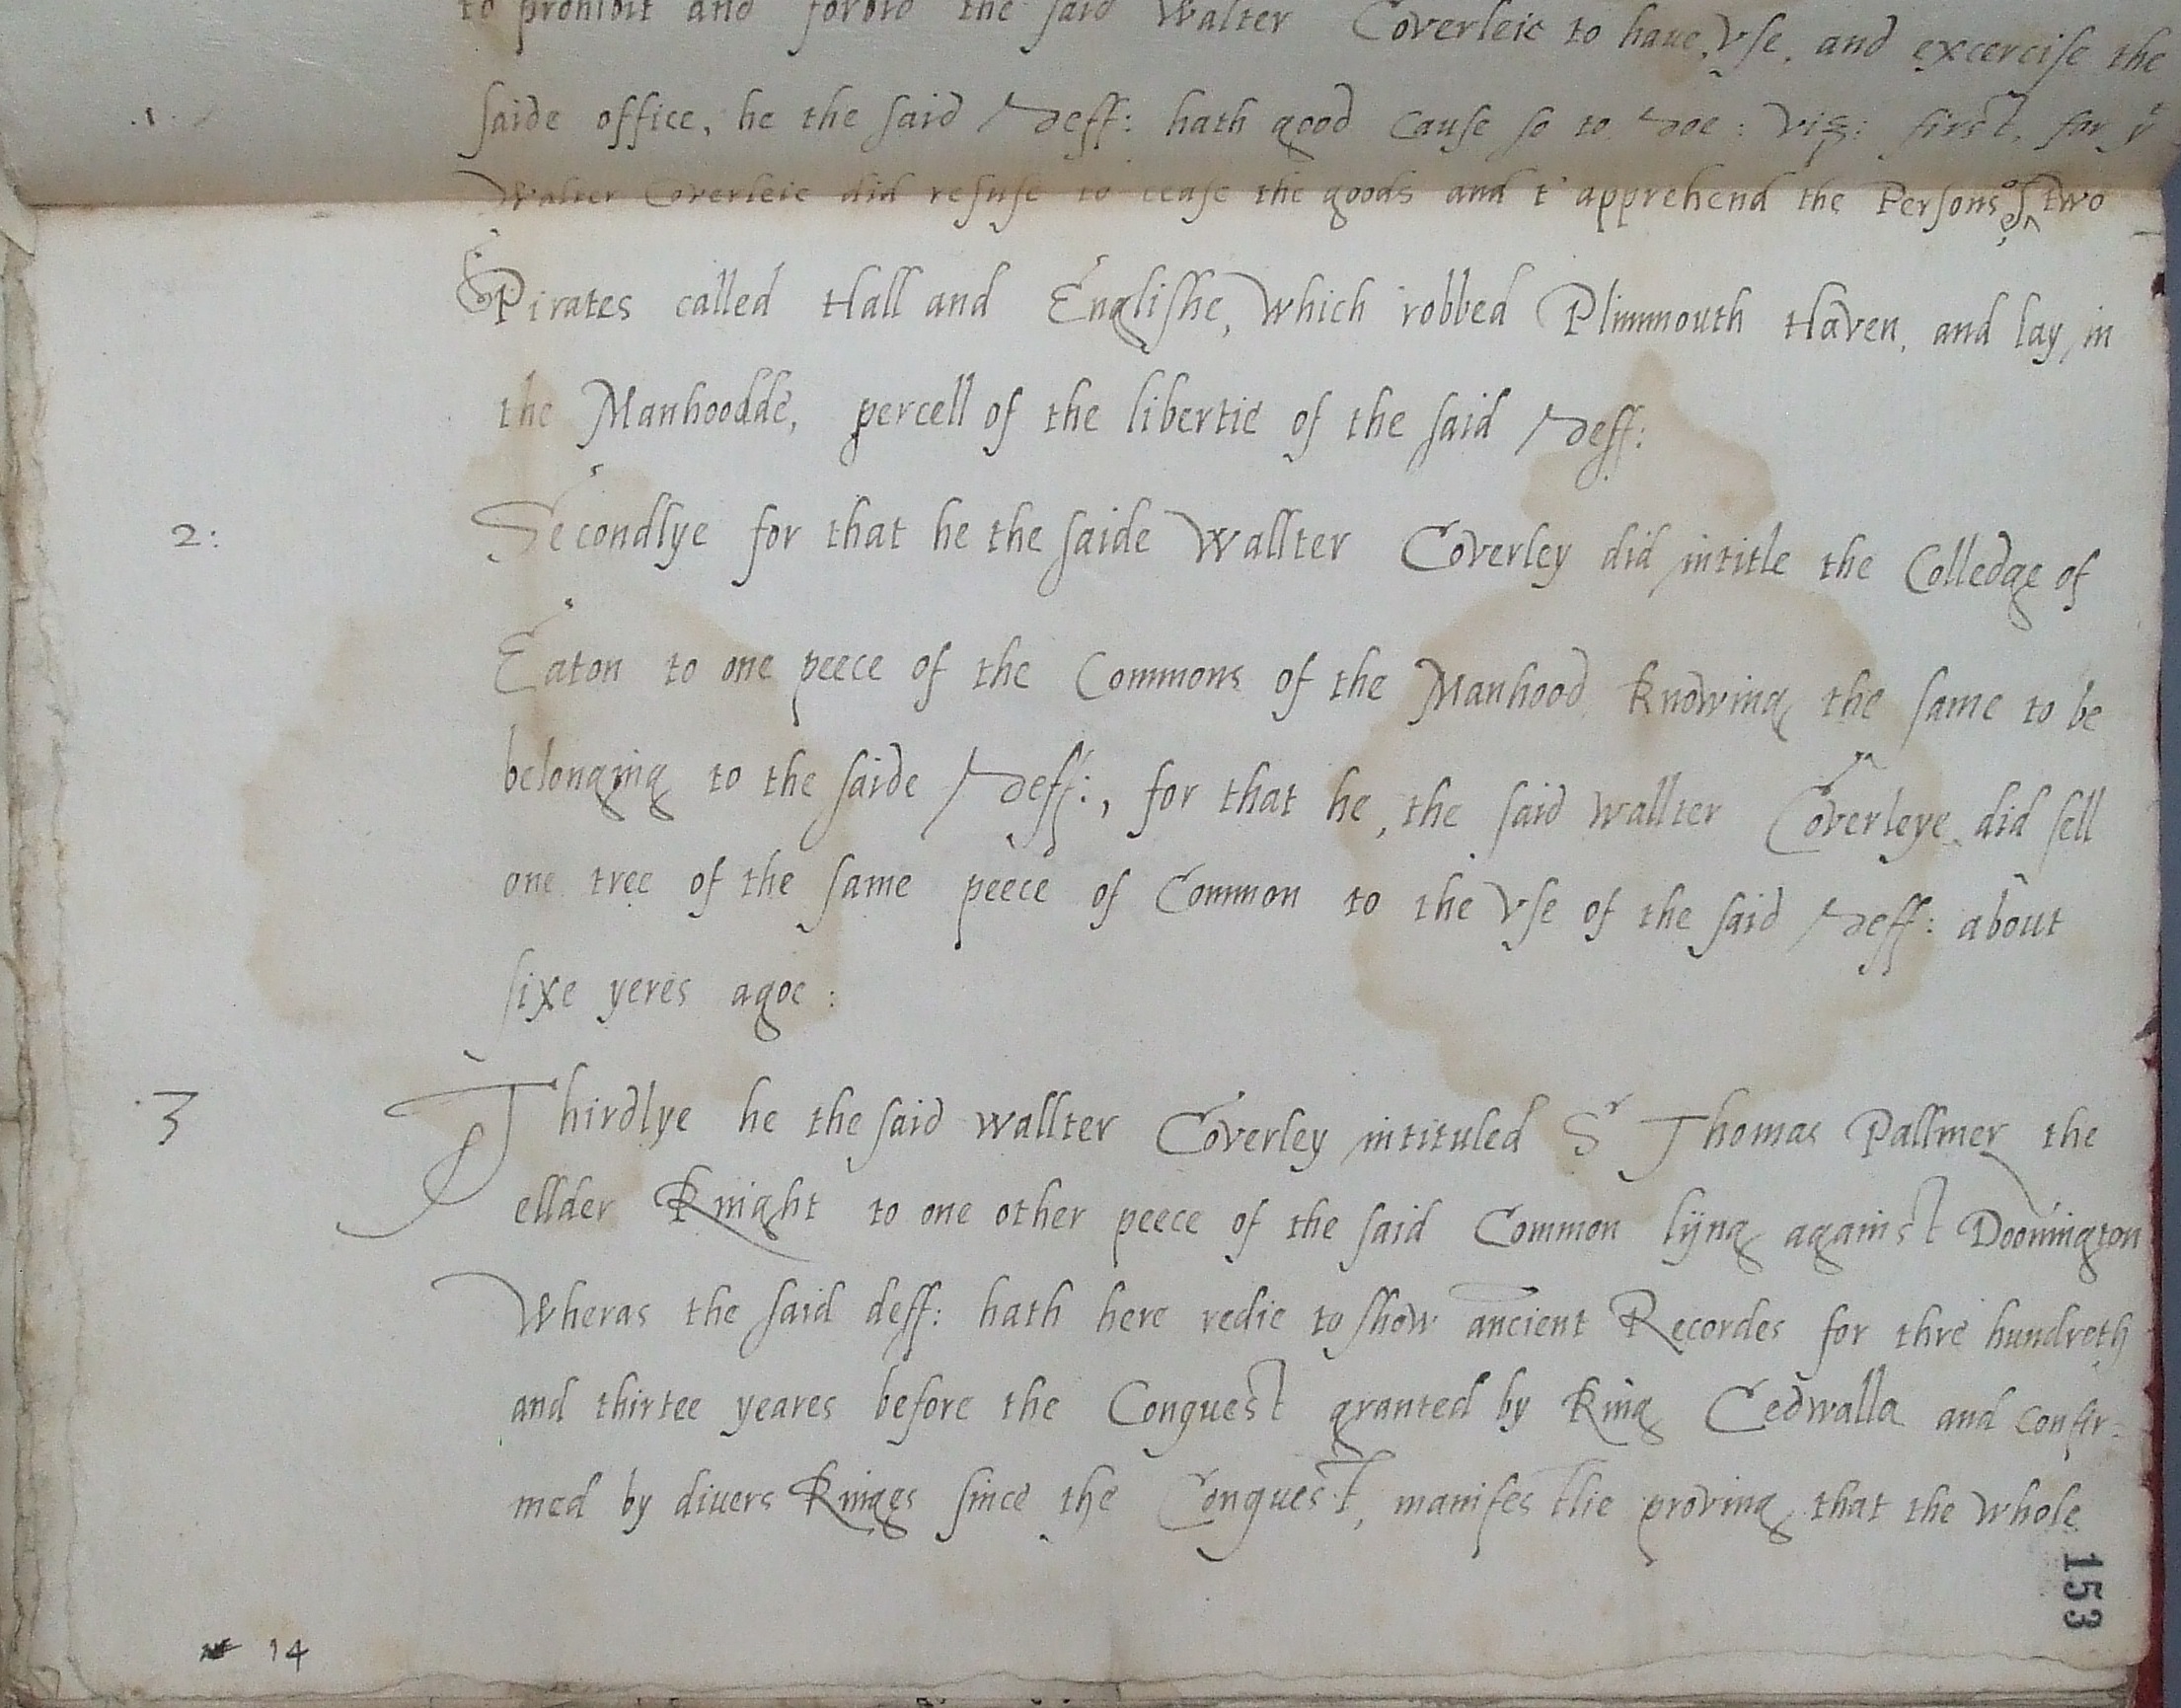 to prohibit and forbid the said Walter Coverleie to haue, vse, and excercise the
.1. saide office, he the said deff: hath good cause so to doe: viz: first, for yt
Walter Coverleie did refuse to cease the goods and t'apprehend the Persons of two
Pirates called Hall and Englishe, which robbed Plimmouth Haven, and lay in
the Manhoodde, percell of the libertie of the said deff:
2: Secondlye for that he the saide Wallter Coverley did intitle the Colledge of
Eaton to one peece of the Commons of the Manhood knowing the same to be
belonging to the saide deff:, for that he, the said wallter Coverleye did sell
one tree of the same peece of Common to the vse of the said deff: about
sixe yeres agoe:
.3 Thirdlye he the said wallter Coverley intituled Sr Thomas Pallmer the
ellder Knight to one other peece of the said Common lijng against Doonington
Wheras the said deff: hath here redie to show ancient Recordes for thre hundreth
and thirtee yeares before the Conquest granted by King Cedwalla and confir-
med by diuers Kinges since the Conquest, manifestlie proving that the whole
153
14